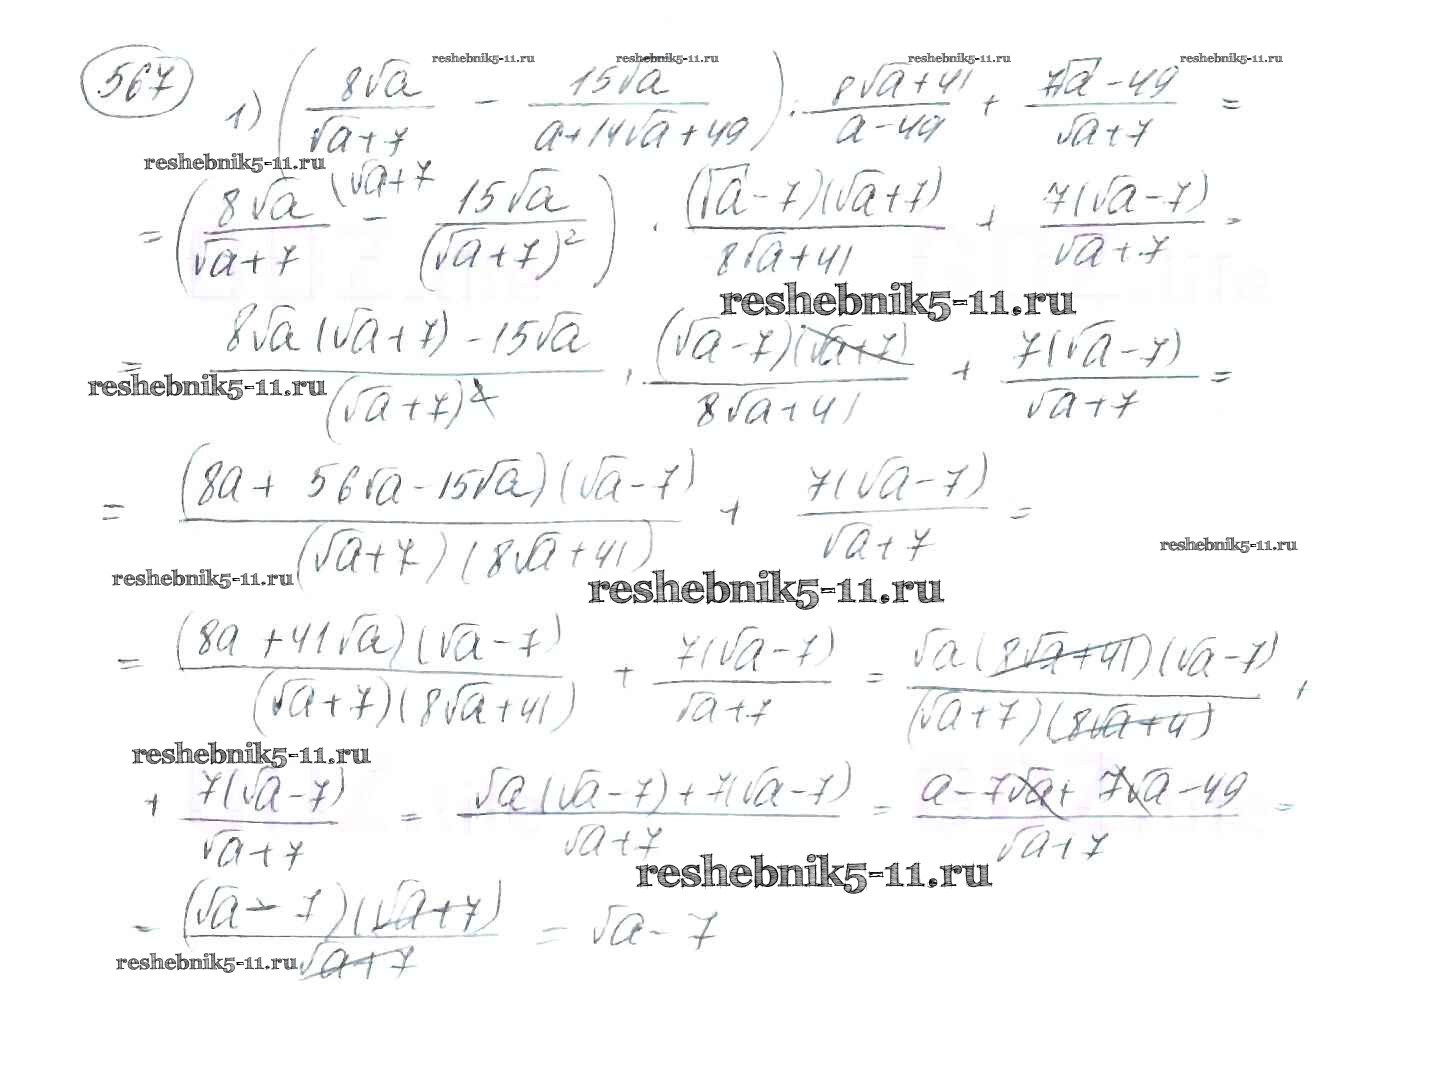 567
reshebnik5-11.ru reshebnik5-11.ru reshebnik5-11.ru reshebnik5-11.ru
1) (8√a/(√a+7) - 15√a/(a+14√a+49)) : (8√a+41)/(a-49) + (7√a-49)/(√a+7) =
reshebnik5-11.ru
= (8√a (√a+7/(√a+7) - 15√a/(√a+7)²) · (√a-7)(√a+7)/(8√a+41) + 7(√a-7)/(√a+7) =
reshebnik5-11.ru
= (8√a(√a+7)-15√a)/(√a+7)² · (√a-7)(√a+7)/(8√a+41) + 7(√a-7)/(√a+7) =
reshebnik5-11.ru
= (8a+56√a-15√a)(√a-7)/((√a+7)(8√a+41)) + 7(√a-7)/(√a+7) =
reshebnik5-11.ru
reshebnik5-11.ru reshebnik5-11.ru
= (8a+41√a)(√a-7)/((√a+7)(8√a+41)) + 7(√a-7)/(√a+7) = √a(8√a+41)(√a-7)/((√a+7)(8√a+41)) +
reshebnik5-11.ru
+ 7(√a-7)/(√a+7) = (√a(√a-7)+7(√a-7))/(√a+7) = (a-7√a+7√a-49)/(√a+7) =
reshebnik5-11.ru
= (√a-7)(√a+7)/(√a+7) = √a-7
reshebnik5-11.ru